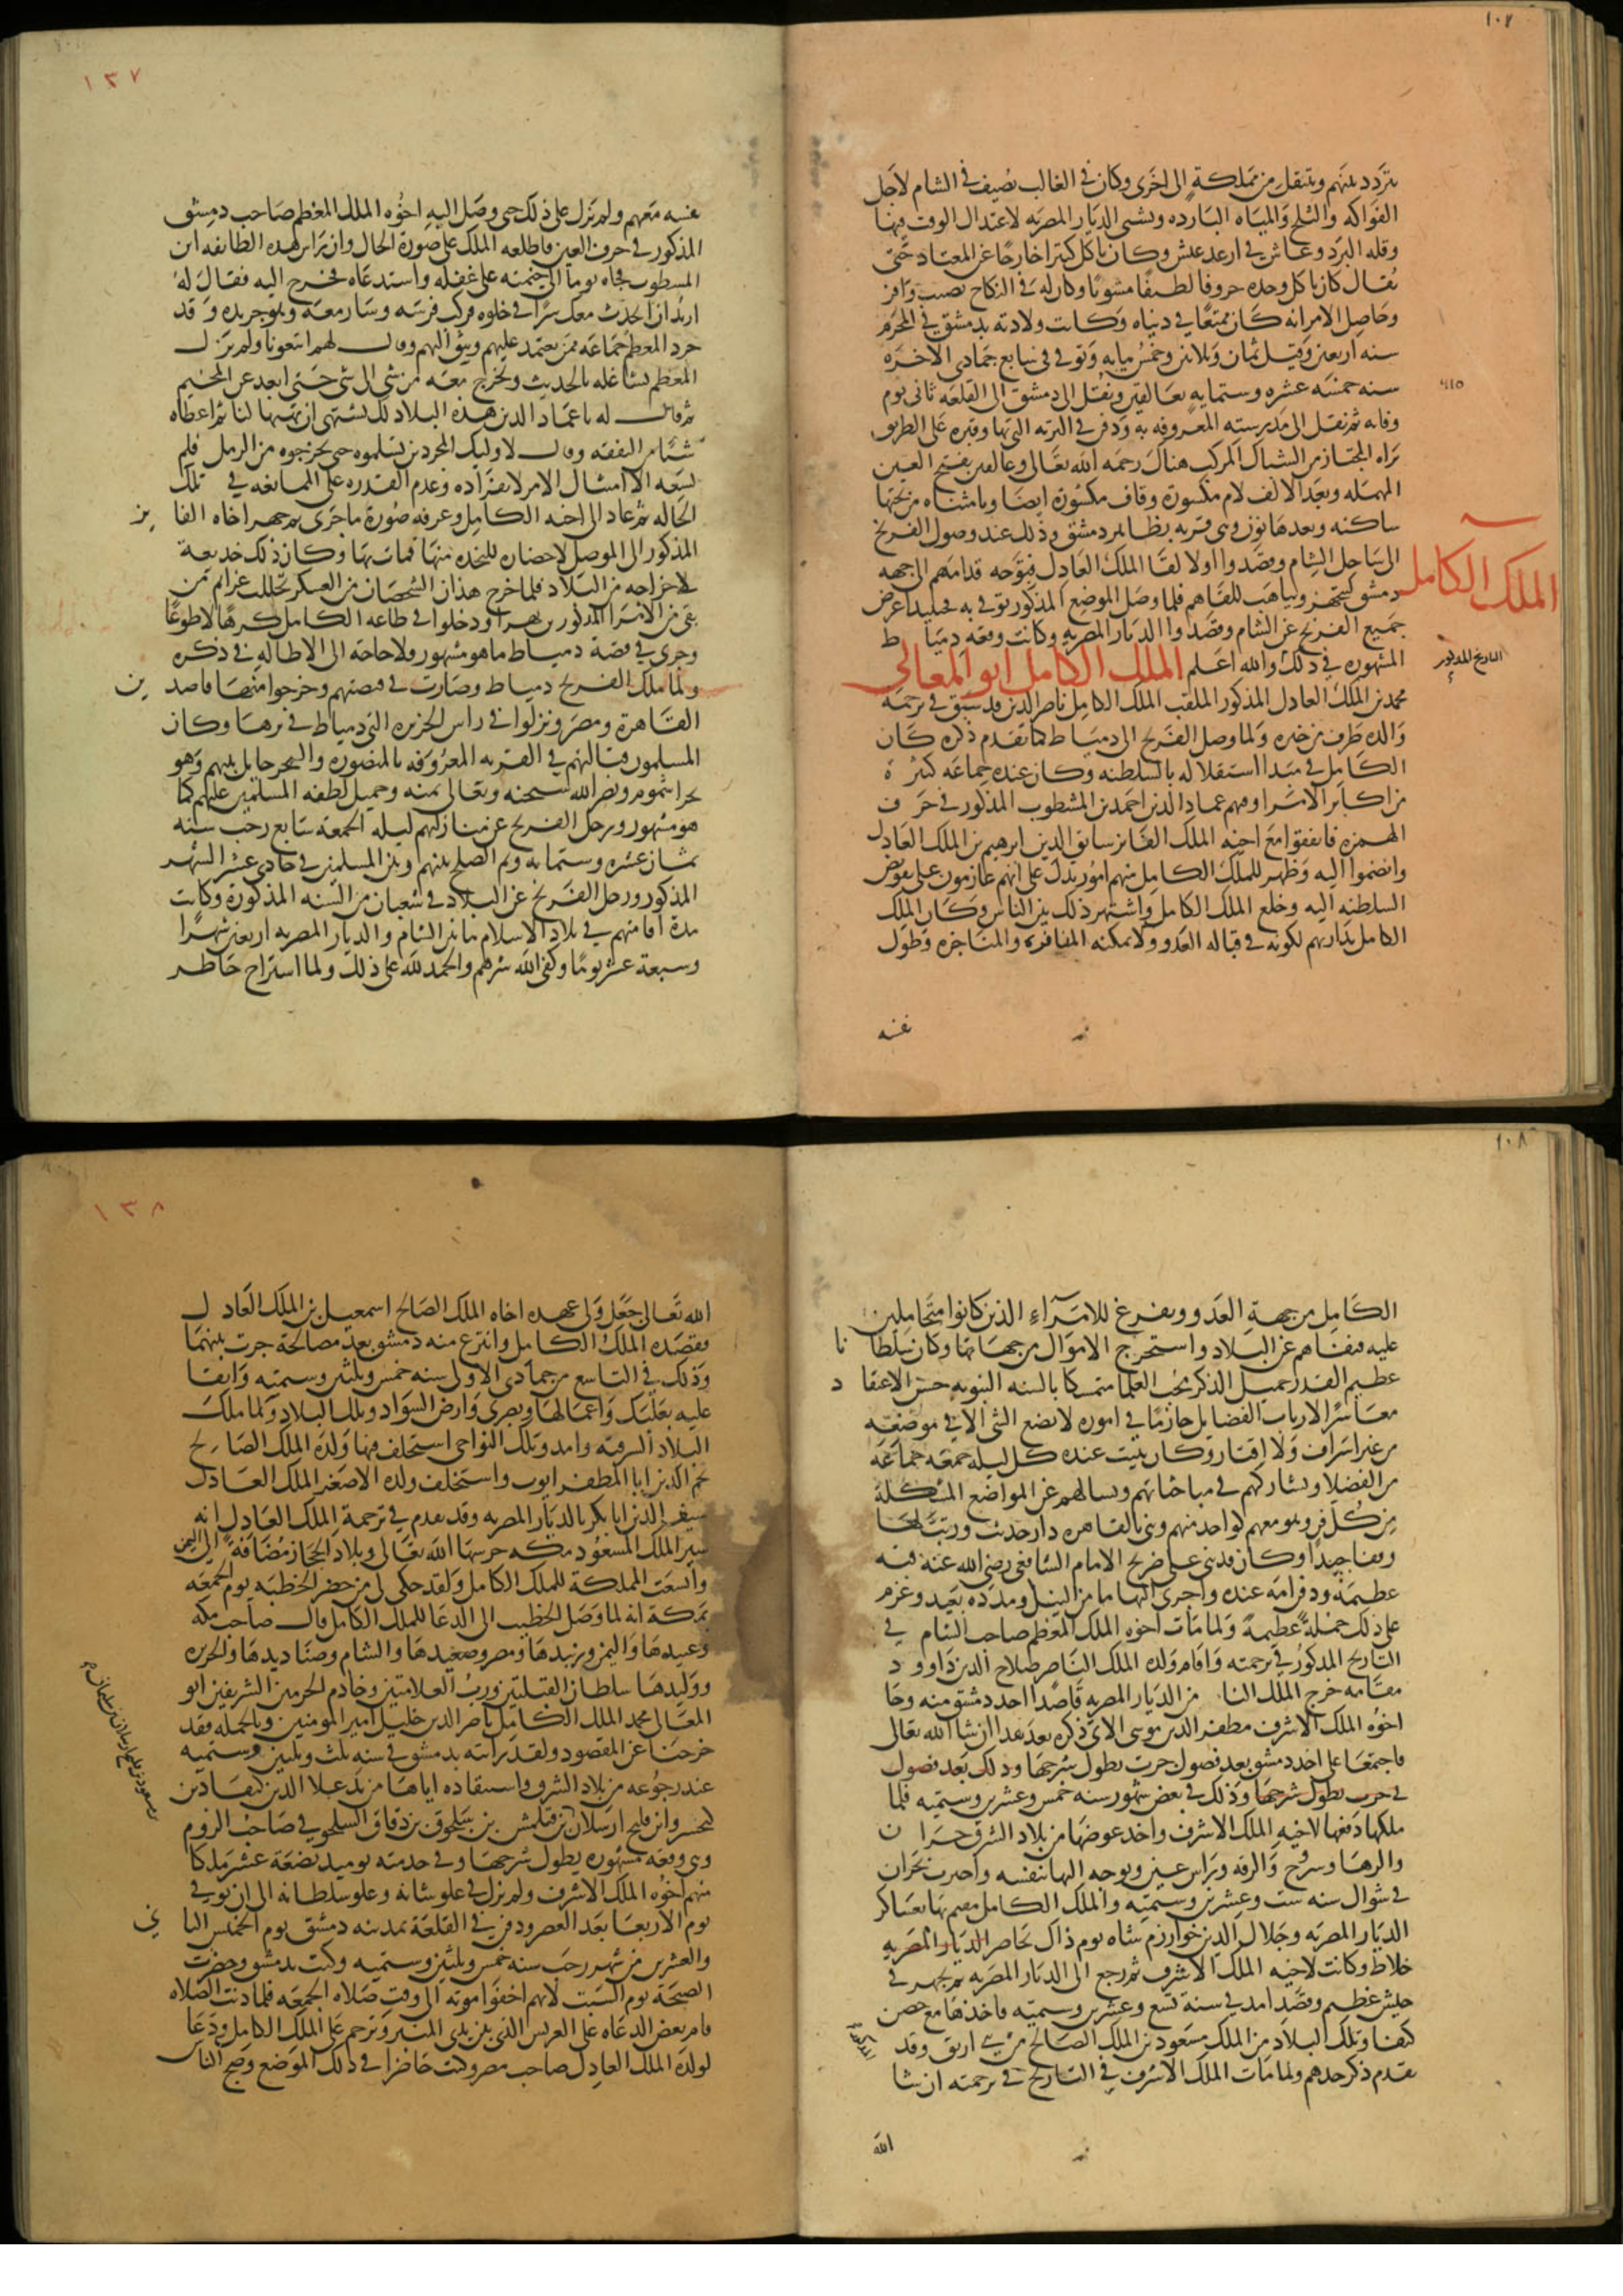 ١٠٧
يتردد بينهم وينتقل من مملكة الى اخرى وكان في الغالب يصيف في الشام لاجل
الفواكه والثلج والمياه البارده ويشتي الديار المصريه لاعتدال الوقت فيها
وقله البرد وعاش في ارغد عيش وكان ياكل كثيرا خارجا عن المعتاد حتى
يقال كان ياكل وحده خروفا لطيفا مشويا وكان له في النكاح نصيب وافر
وحاصل الامر انه كان ممتعا في دنياه وكانت ولادته بدمشق في المحرم
سنه اربعين وقيل ثمان وثلاثين وخمس مايه وتوفي في سابع جمادى الاخره
سنه خمسه عشره وستمايه بعالقين ونقل الى دمشق الى القلعه ثاني يوم
٦١٥
وفاته ثم نقل الى مدرسته المعروفه به ودفن في التربه التي بها وقبره على الطريق
يراه المجتاز من الشباك المركب هناك رحمه الله تعالى وعالقين بفتح العين
المهمله وبعد الالف لام مكسورة وقاف مكسورة ايضا ويا مثناه من تحتها
ساكنه وبعدها نون وهي قريه بظاهر دمشق وذلك عند وصول الفرنج
الى ساحل الشام وقصدوا اولا لقا الملك العادل فتوجه قدامهم الى جهه
الملك الكامل
دمشق ليتجهز ويتاهب للقاهم فلما وصل الموضع المذكور توفي به فحينيذ اعرض
جميع الفرنج عن الشام وقصدوا الديار المصريه وكانت وقعه دمياط
المشهوره في ذلك والله اعلم الملك الكامل ابو المعالي
التاريخ المذكور
محمد بن الملك العادل المذكور الملقب الملك الكامل ناصر الدين قد سبق في ترجمه
والده طرف من خبره ولما وصل الفرنج الى دمياط كما تقدم ذكره كان
الكامل في مبدا استقلاله بالسلطنه وكان عنده جماعه كثيرة
من اكابر الامرا ومنهم عماد الدين احمد بن المشطوب المذكور في حرف
الهمزه فاتفقوا مع اخيه الملك الفايز سابق الدين ابرهيم بن الملك العادل
وانضموا اليه وظهر للملك الكامل منهم امور تدل على انهم عازمون على تفويض
السلطنه اليه وخلع الملك الكامل واشتهر ذلك بين الناس وكان الملك
الكامل يداريهم لكونه في قباله العدو ولا يمكنه المنافره والمناجزه وطول
نفسه
١٣٧
نفسه معهم ولم يزل على ذلك حتى وصل اليه اخوه الملك المعظم صاحب دمشق
المذكور في حرف العين فاطلعه الملك على صورة الحال وان راس هذه الطايفه ابن
المشطوب فجاه يوما الى خيمته على غفله واستدعاه فخرج اليه فقال له
اريد ان اتحدث معك سرا في خلوه فركب فرسه وسار معه وهو جريده وقد
جرد المعظم جماعه ممن يعتمد عليهم ويثق اليهم وقال لهم اتبعونا ولم يزل
المعظم يشاغله بالحديث ويخرج معه من شي الى شي حتى ابعد عن المخيم
ثم قال له يا عماد الدين هذه البلاد لك نشتهي ان تهبها لنا ثم اعطاه
شيا من النفقه وقال لاوليك المجردين تسلموه حتى تخرجوه من الرمل فلم
يسعه الا امتثال الامر لانفراده وعدم القدره على الممانعه في تلك
الحاله ثم عاد الى اخيه الكامل وعرفه صورة ما جرى ثم جهز اخاه الفايز
المذكور الى الموصل لاحضار النجده منها فمات بها وكان ذلك خديعة
لاخراجه من البلاد فلما خرج هذان الشخصان من العسكر تحللت عزايم من
بقي من الامرا المذكورين بهرا ودخلوا في طاعه الكامل كرها لا طوعا
وجرى في قصة دمياط ما هو مشهور ولا حاجه الى الاطاله في ذكره
ولما ملك الفرنج دمياط وصارت في قبضتهم وخرجوا منها قاصدين
القاهرة ومصر ونزلوا في راس الجزيره التي دمياط في برها وكان
المسلمون قبالتهم في القريه المعروفه بالمنصوره والبحر حايل بينهم وهو
بحر اشموم ونصر الله سبحنه وتعالى بمنه وجميل لطفه المسلمين عليهم كما
هو مشهور ورحل الفرنج عن منازلهم ليله الجمعه سابع رجب سنه
ثمان عشره وستمايه وتم الصلح بينهم وبين المسلمين في حادي عشر الشهر
المذكور ورحل الفرنج عن البلاد في شعبان من السنه المذكورة وكانت
مدة اقامتهم في بلاد الاسلام ما بين الشام والديار المصريه اربعين شهرا
وسبعة عشر يوما وكفى الله شرهم والحمد لله على ذلك ولما استراح خاطر
١٠٨
الكامل من جهة العدو وتفرغ للامراء الذين كانوا متحاملين
عليه فنفاهم عن البلاد واستخرج الاموال من جهاتها وكان سلطانا
عظيم القدر جميل الذكر يحب العلما متمسكا بالسنه النبويه حسن الاعتقاد
معاشرا لارباب الفضايل حازما في اموره لا يضع الشي الا في موضعه
من غير اسراف ولا اقتار وكان يبيت عنده كل ليله جمعه جماعه
من الفضلا ويشاركهم في مباحثاتهم ويسالهم عن المواضع المشكلة
من كل فن وهو معهم كواحد منهم وبنى بالقاهره دار حديث ورتب لها
وقفا جيدا وكان قد بنى على ضريح الامام الشافعي رضي الله عنه قبه
عظيمه ودفن امه عنده واجرى اليها ما من النيل ومدده بعيد وغرم
على ذلك جملة عظيمة ولما مات اخوه الملك المعظم صاحب الشام في
التاريخ المذكور في ترجمته واقام ولده الملك الناصر صلاح الدين داوود
مقامه خرج الملك النا من الديار المصريه قاصدا اخذ دمشق منه وجا
اخوه الملك الاشرف مظفر الدين موسى الاتي ذكره بعد هذا ان شا الله تعالى
فاجتمعا على اخذ دمشق بعد فصول جرت يطول شرحها وذلك بعد فصول
في حرب يطول شرحها وذلك في بعض شهور سنه خمس وعشرين وستميه فلما
ملكها دفعها لاخيه الملك الاشرف واخذ عوضها من بلاد الشرق حران
والرها وسروج والرقه وراس عين وتوجه اليها بنفسه واخبرت بحران
في شوال سنه ست وعشرين وستميه والملك الكامل مقيم بها بعساكر
الديار المصريه وجلال الدين خوارزم شاه يوم ذاك يحاصر الديار المصريه
خلاط وكانت لاخيه الملك الاشرف ثم رجع الى الديار المصريه ثم تجهز في
جيش عظيم وقصد امد في سنة تسع وعشرين وستميه فاخذها مع حصن
كيفا وتلك البلاد من الملك مسعود بن الملك الصالح من بني ارتق وقد
تقدم ذكر جدهم ولما مات الملك الاشرف في التاريخ في ترجمته ان شا
الله
١٣٨
الله تعالى جعل ولي عهده اخاه الملك الصالح اسمعيل بن الملك العادل
فقصده الملك الكامل وانتزع منه دمشق بعد مصالحة جرت بينهما
وذلك في التاسع من جمادى الاولى سنه خمس وثلثين وستميه وابقا
عليه بعلبك واعمالها وبصرى وارض السواد وتلك البلاد ولما ملك
البلاد الشرقيه وامد وتلك النواحي استخلف فيها ولده الملك الصالح
نجم الدين ابا المظفر ايوب واستخلف ولده الاصغر الملك العادل
سيف الدين ابا بكر بالديار المصريه وقد تقدم في ترجمة الملك العادل انه
سير الملك المسعود مكه حرسها الله تعالى وبلاد الحجاز مضافة الى اليمن
واتسعت المملكة للملك الكامل ولقد حكى لي من حضر الخطبه يوم الجمعه
بمكة انه لما وصل الخطيب الى الدعا للملك الكامل قال صاحب مكه
وعبيدها واليمن وزبيدها ومصر وصعيدها والشام وصناديدها والجزيره
ووليدها سلطان القبلتين ورب العلامتين وخادم الحرمين الشريفين ابو
المعالي محمد الملك الكامل ناصر الدين خليل امير المومنين وبالجمله فقد
خرجنا عن المقصود ولقد رايته بدمشق في سنه ثلث وثلثين وستميه
عند رجوعه من بلاد الشرق واستنقاذه اياها من يد علا الدين كيقباذ بن
كيخسرو ابن قلج ارسلان بن قتلمش بن سلجوق بن دقاق السلجوقي صاحب الروم
بن مسعود بن قلج ارسلان بن سليمان
وهي وقعه مشهوره يطول شرحها وفي خدمته يوميذ بضعة عشر ملكا
منهم اخوه الملك الاشرف ولم يزل في علو شانه وعلو سلطانه الى ان توفي
يوم الاربعا بعد العصر ودفن في القلعة بمدينه دمشق يوم الخميس الثاني
والعشرين من شهر رجب سنه خمس وثلثين وستميه وكنت بدمشق وحضرت
الصبحة يوم السبت لانهم اخفوا موته الى وقت صلاه الجمعه فلما دنت الصلاه
قام بعض الدعاه على العريس الذي بين يدي المنبر وترحم على الملك الكامل ودعا
لولده الملك العادل صاحب مصر وكنت حاضرا في ذلك الموضع وضج الناس